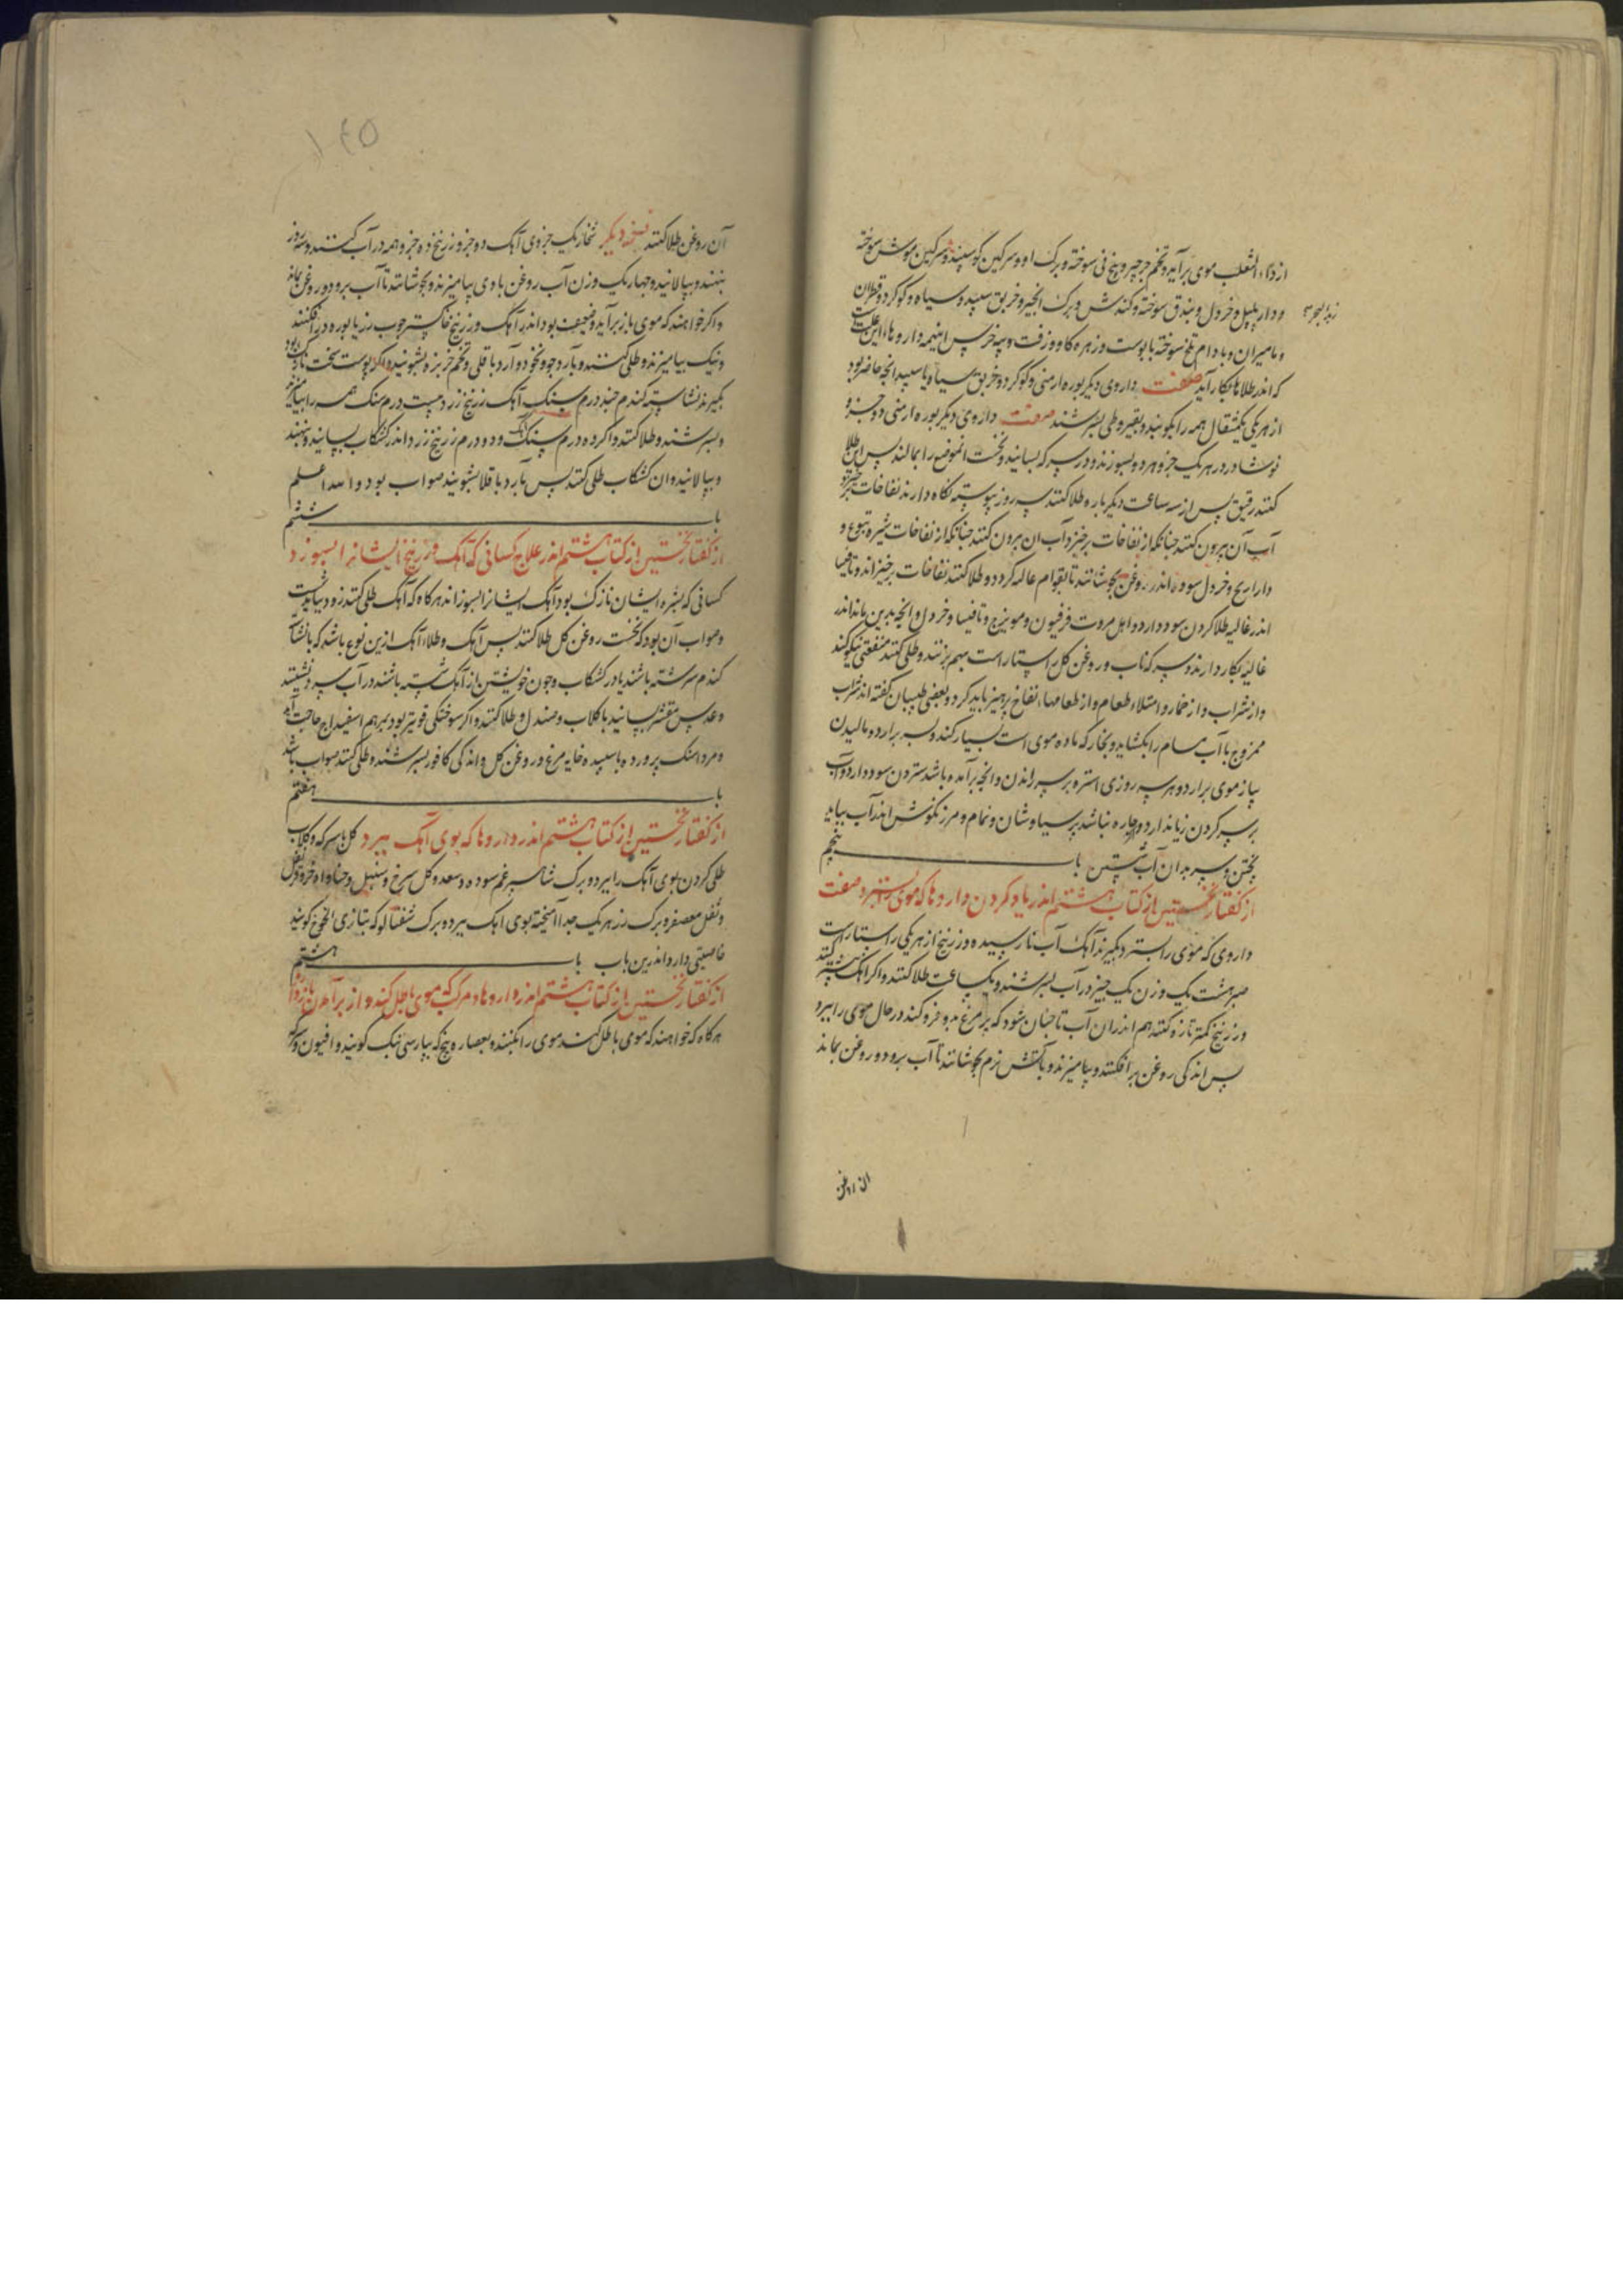 از داء الثعلب موی برآید و تخم جرجیر و بیخ نی سوخته و برک او و سرکین کوسپند و سرکین موش سوخته
زبد البحر
و دار پلپل و خردل و بندق سوخته و کندش و برک انجیر و خربق سپید و سیاه و کوکرد و قطران
و مامیران و بادام تلخ سوخته با پوست و زهره کاو و زفت و پیه خرس اینهمه داروهاء این علت است
که اندر طلاها بکار آید صفت داروی دیکر بوره ارمنی و کوکرد و خربق سیاه یا سپید انچه حاضر بود
از هر یکی یکمثقال همه را بکوبند و بقیروطی بسرشند صفت داروی دیکر بوره ارمنی دو جزو
نوشادر در هر یک جزو هر دو بسوزند و در سرکه بسایند و نخست انموضع را بمالند پس این طلا
کنند رقیق پس از سه ساعت دیکر باره طلا کنند سه روز پیوسته نکاه دارند نفاخات برخیزد
آب آن برون کنند جنانکه از نفاخات برخیزد آب ان برون کنند جنانکه از نفاخات شیره یتوع و
ذراریح و خردل سوده اندر روغن بجوشانند تا بقوام غالیه کردد و طلا کنند نفاخات برخیزاند و تافیسا
اندر غالیه طلا کردن سود دارد و اهل مروت فرفیون و مویزج و تافیسا و خردل و انچه بدین ماند اندر
غالیه بکار دارند و سرکه ناب و روغن کل راستاراست بهم بزنند و طلی کنند منفعتی نیکو کند
و از شراب و از خمار و امتلاء طعام و از طعامهاء نفاخ پرهیز باید کرد و بعضی طبیبان کفته اند شراب
ممزوج با آب مسام را بکشاید و بخار که ماده موی است بسیار کند و بسر برارد و مالیدن
پیاز موی برارد و هر سه روزی استره بر سر راندن و انچه برآمده باشد ستردن سود دارد و آب
بر سر کردن زیان دارد و چاره نباشد پرسیاوشان و نمام و مرزنکوش اندر آب بباید
پختن و سر بدان آب شستن باب پنجم
از کفتار نخستین از کتاب هشتم اندر یاد کردن داروها که موی بسترد صفت
داروی که موی را بسترد بکیرند آهک آب نارسیده و زرنیخ از هر یکی راستاراست
صبر هشت یک وزن یک جیز در آب بسرشند و یکساعت طلا کنند و اکر آهک بیشتر کنند
و زرنیخ کمتر تازه کنند هم اندران آب تا جنان شود که پر مرغ بدو فرو کنند در حال موی را ببرد
پس اندکی روغن برافکنند و بیامیزند و بآتش نرم بجوشانند تا آب برود و روغن بماند
ان روغن
۱۴۵
آن روغن طلا کنند نسخه دیکر شخار یک جزوی آهک دو جزو زرنیخ ده جزو همه در آب کنند و سه روز
بنهند و بپالایند و چهار یک وزن آب روغن با وی بیامیزند و بجوشانند تا آب برود و روغن بماند
و اکر خواهند که موی باز برآید و ضعیف بود اندر آهک و زرنیخ خاکستر جوب رز یا بوره درافکنند
و نیک بیامیزند و طلی کنند و بآرد جو و نخود و آرد باقلی و تخم خربزه بشویند و اکر پوست سخت نازک بود
بکیرند نشاسته کندم صد درم سنک آهک زرنیخ زرد بیست درم سنک همه را بیامیزند
و بسرشند و طلا کنند و اکر ده درم سنک آهک و دو درم زرنیخ زرد اندر کشکاب بسایند و بنهند
و بپالایند و ان کشکاب طلی کنند پس بآرد باقلا بشویند صواب بود والله اعلم
باب ششم
از کفتار نخستین از کتاب هشتم اندر علاج کسانی که آهک و زرنیخ ایشانرا بسوزد
کسانی که بشره ایشان نازک بود آهک ایشانرا بسوزاند هرکاه که آهک طلی کنند زود بباید شست
و صواب آن بود که نخست روغن کل طلا کنند پس آهک و طلاء آهک ازین نوع باشد که با نشاسته
کندم سرشته باشند یا در کشکاب و چون خویشتن از آهک شسته باشند در آب سرد نشینند
و عدس مقشر بسایند با کلاب و صندل و طلا کنند و اکر سوختکی قویتر بود بمرهم اسفیداج حاجت آید
و مرداسنک پرورده با سپیده خایه مرغ و روغن کل و اندکی کافور بسرشند و طلی کنند صواب باشد
باب هفتم
از کفتار نخستین از کتاب هشتم اندر داروها که بوی آهک ببرد کل با سرکه و کلاب
طلی کردن بوی آهک را ببرد و برک شاهسپرغم سوده و سعد و کل سرخ و سنبل و حنا و اذخر و قرنفل
و ثفل معصفر و برک رز هر یک جدا آمیخته بوی اهک ببرد و برک شفتالو که بتازی الخوخ کویند
خاصیتی دارد اندرین باب باب هشتم
از کفتار نخستین از کتاب هشتم اندر داروهاء مرکب که موی باطل کند و از برآمدن بازدارد
هرکاه که خواهند که موی باطل کنند موی را بکنند و بعصاره بنج که بپارسی بنک کویند و افیون و سرکه